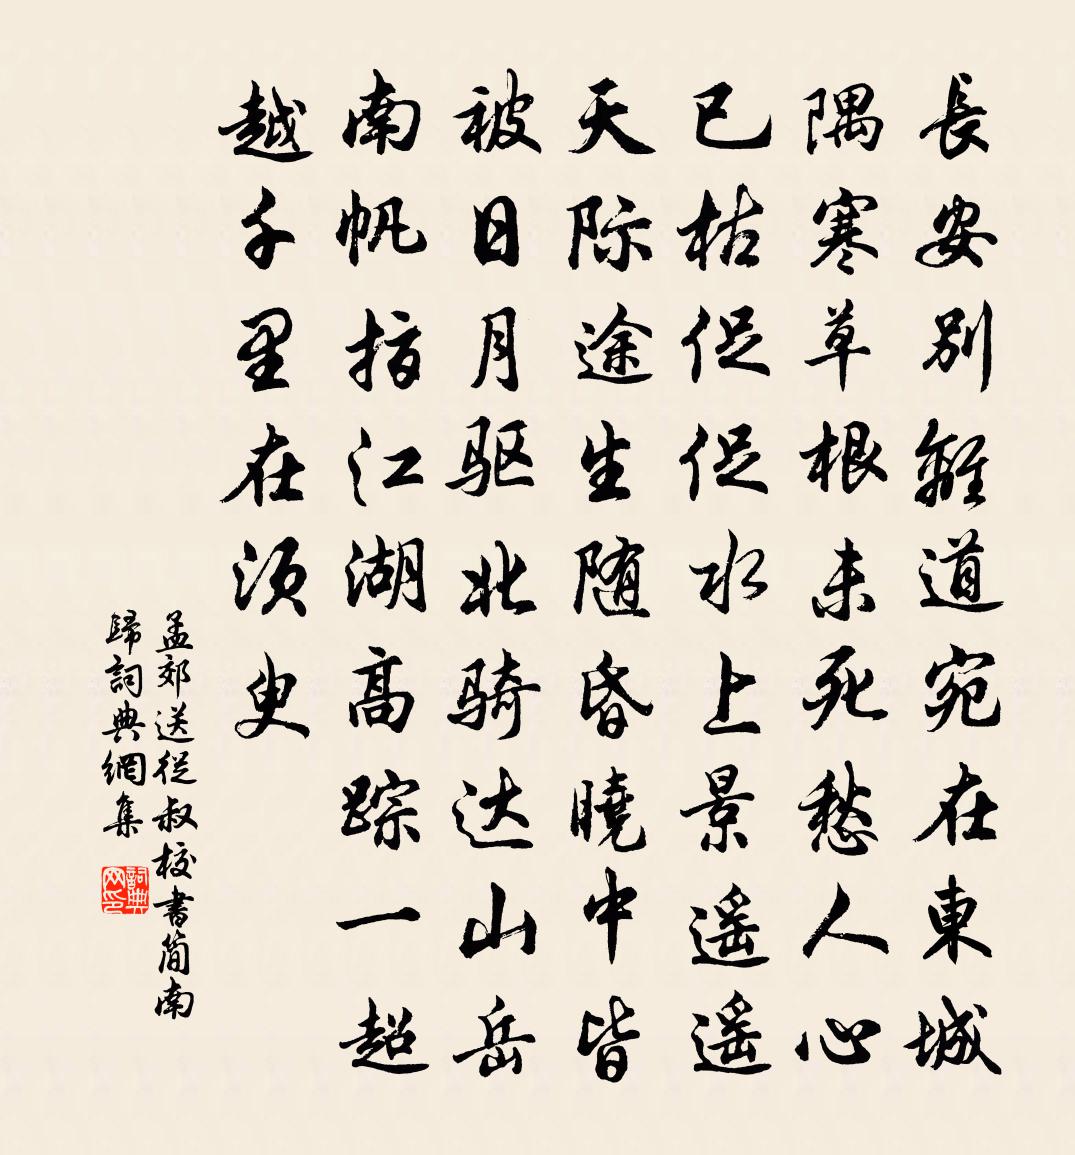 長安別離道宛在東城
隅寒草根未死愁人心
已枯促促水上景遥遥
天际途生随昏曉中皆
被日月驱北骑达山岳
南帆指江湖高踪一超
越千里在须臾
孟郊送從叔校書简南
歸詞典網集
詞典网印